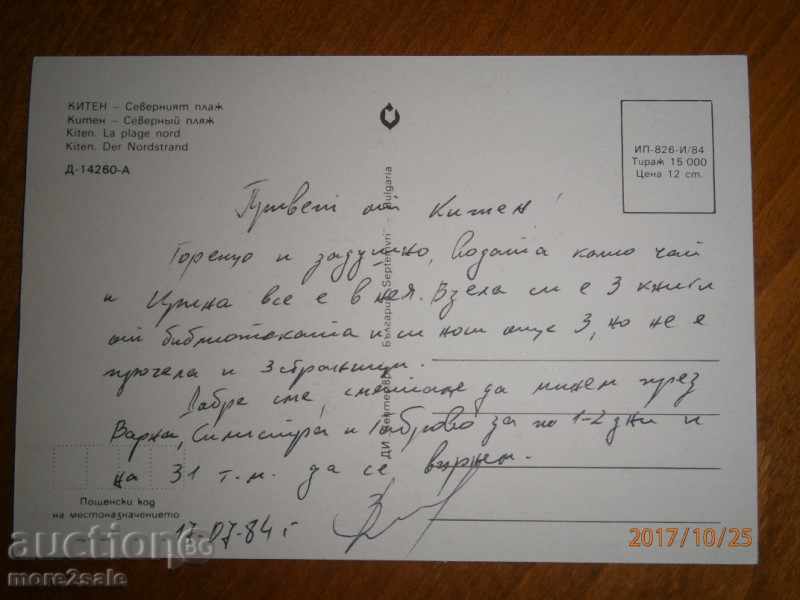 КИТЕН – Северният плаж
Китен – Северный пляж
Kiten. La plage nord
Kiten. Der Nordstrand
Д-14260-А
ИП-826-И/84
Тираж 15 000
Цена 12 ст.
ДИ „Септември" България Septemvri Bulgaria
Привет от Китен!
Горещо и задушно, водата като чай
и Ирина все е в нея. Взела си е 3 книги
от библиотеката и си носи още 3, но не е
прочела и 3 страници.
Добре сме, смятаме да минем през
Варна, Силистра и Габрово за по 1-2 дни и
на 31 т.м. да се върнем.
17.07.84 г
Пощенски код
на местоназначението
2017/10/25
auction.bg
more2sale